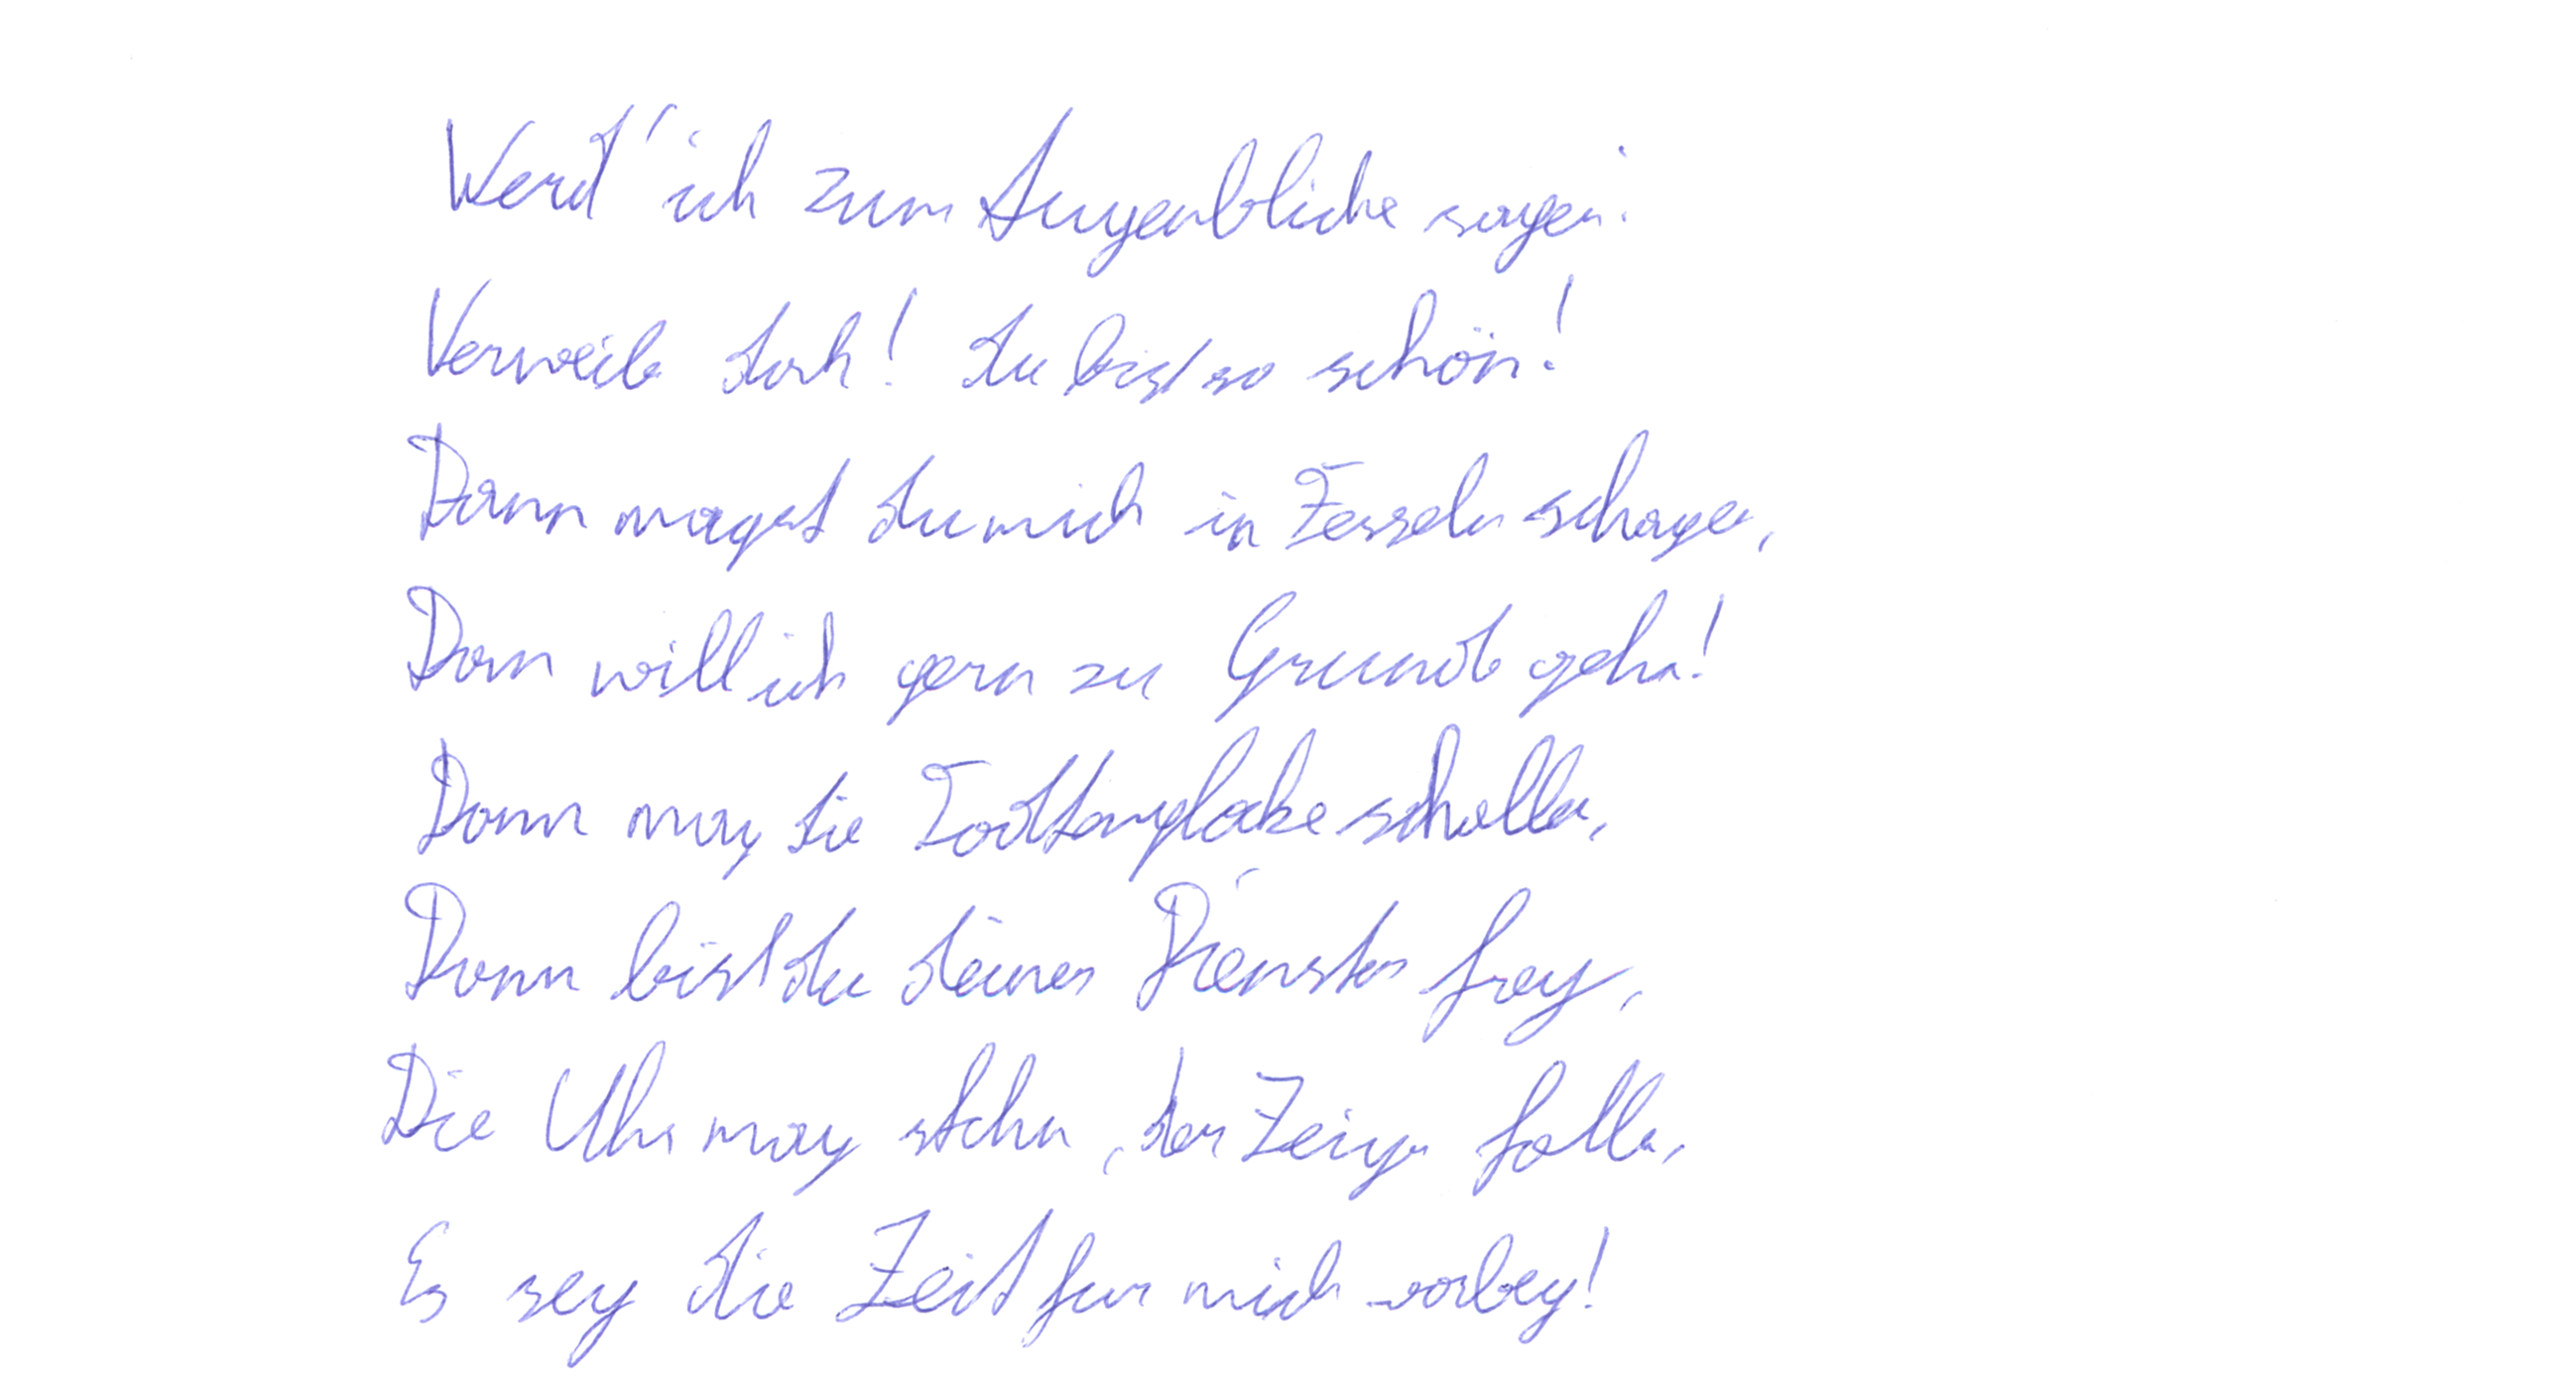 Werd' ich zum Augenblicke sagen:
Verweile doch! du bist so schön!
Dann magst du mich in Fesseln schagen,
Dann will ich gern zu Grunde gehn!
Dann mag die Todtenglocke schallen,
Dann bist du deines Dienstes frey,
Die Uhr mag stehn, der Zeiger fallen,
Es sey die Zeit fur mich vorbey!